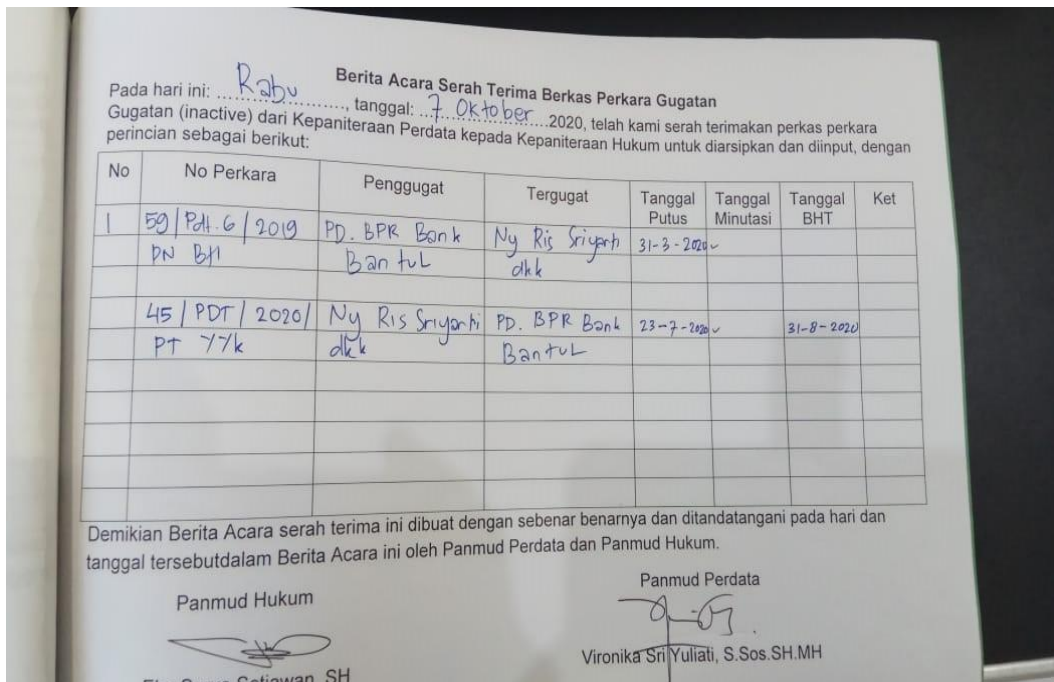 Berita Acara Serah Terima Berkas Perkara Gugatan
Pada hari ini: Rabu, tanggal: 7 Oktober 2020, telah kami serah terimakan perkas perkara
Gugatan (inactive) dari Kepaniteraan Perdata kepada Kepaniteraan Hukum untuk diarsipkan dan diinput, dengan
perincian sebagai berikut:
No No Perkara Penggugat Tergugat Tanggal Putus Tanggal Minutasi Tanggal BHT Ket
1 59/Pdt.G/2019 PD. BPR Bank Ny Ris Sriyanti 31-3-2020
PN Btl Bantul dkk
45/PDT/2020/ Ny Ris Sriyanti PD. BPR Bank 23-7-2020 31-8-2020
PT YYk dkk Bantul
Demikian Berita Acara serah terima ini dibuat dengan sebenar benarnya dan ditandatangani pada hari dan
tanggal tersebutdalam Berita Acara ini oleh Panmud Perdata dan Panmud Hukum.
Panmud Hukum Panmud Perdata
Vironika Sri Yuliati, S.Sos.SH.MH
Setiawan, SH